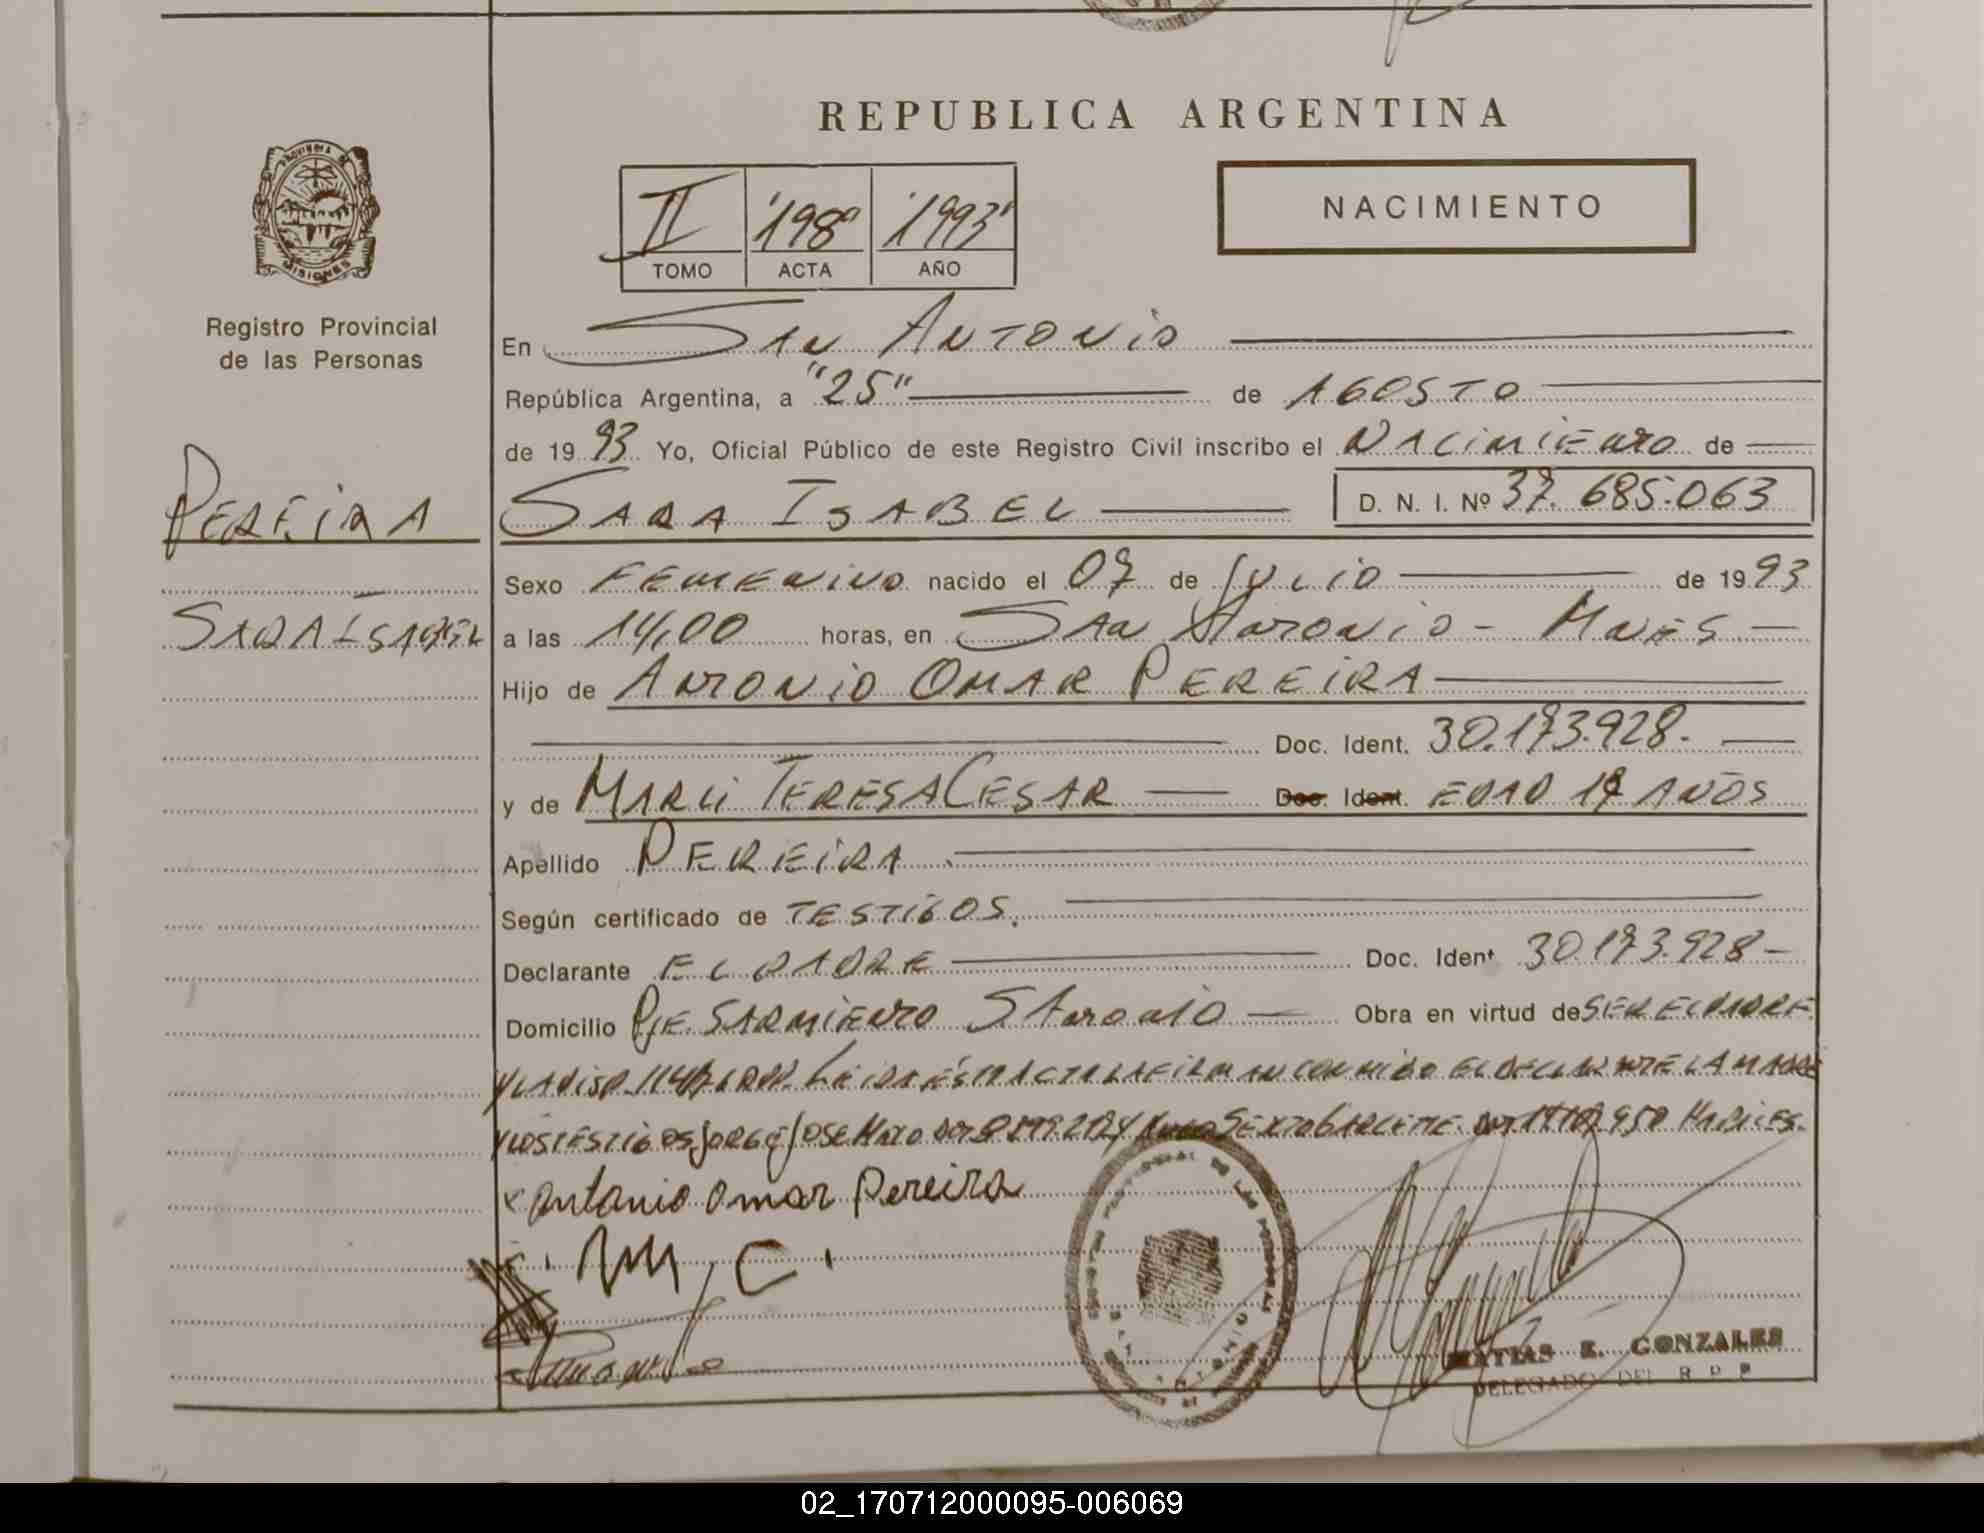 REPUBLICA ARGENTINA
PROVINCIA DE
MISIONES
II "198" "1993"
TOMO ACTA AÑO
NACIMIENTO
Registro Provincial
de las Personas
En SAN ANTONIO
República Argentina, a "25" de AGOSTO
de 19 93 Yo, Oficial Público de este Registro Civil inscribo el NACIMIENTO de
PEREIRA
SARA ISABEL D. N. I. Nº 37.685.063
Sexo FEMENINO nacido el 07 de JULIO de 19 93
SARA ISABEL
a las 14,00 horas, en SAN ANTONIO - MNES
Hijo de ANTONIO OMAR PEREIRA
Doc. Ident. 30.173.928.
y de MARLI TERESA CESAR Doc. Ident. EDAD 17 AÑOS
Apellido PEREIRA
Según certificado de TESTIGOS.
Declarante EL PADRE Doc. Ident 30.173.928
Domicilio PJE SARMIENTO S ANTONIO Obra en virtud de SER EL PADRE
Y LA DISP. LEIDA ESTA ACTA LA FIRMAN CONMIGO EL DECLARANTE LA MADRE
Y LOS TESTIGOS JORGE JOSE SEXTO HABILES.
x Antonio Omar Pereira
M C.
MATIAS E. GONZALES
DELEGADO DEL R P P
02_170712000095-006069